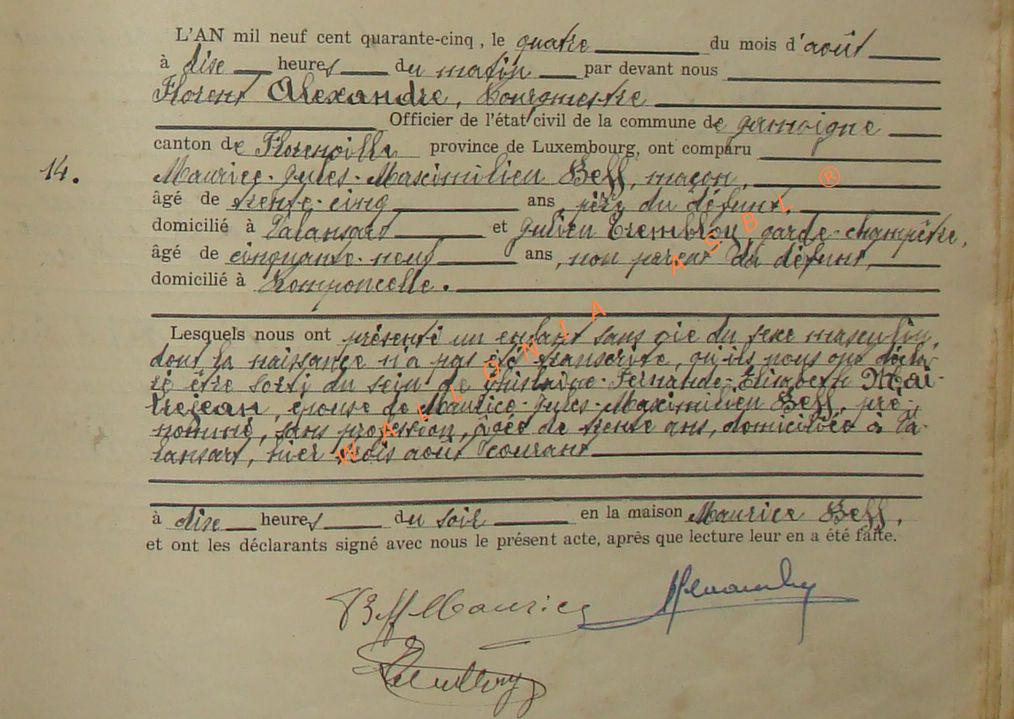 L'AN mil neuf cent quarante-cinq, le quatre du mois d'août
à dixe heures du matin par devant nous
Florent Alexandre, Bourgmestre
Officier de l'état civil de la commune de Jamoigne
canton de Florenville province de Luxembourg, ont comparu
14. Maurice-Jules-Maximilien Beff, maçon,
âgé de trente-cinq ans, père du défunt,
domicilié à Valansart et Julien Trembloy garde-champêtre,
âgé de cinquante-neuf ans, non parent du défunt,
domicilié à Romponcelle.
Lesquels nous ont présenté un enfant sans vie du sexe masculin,
dont la naissance n'a pas été transcrite, qu'ils nous ont décla-
ré être sorti du sein de Ghislaine-Fernande-Elisabeth Mai-
trejean, épouse de Maurice-Jules-Maximilien Beff, pré-
nommé, sans profession, âgée de trente ans, domiciliée à Va-
lansart, hier trois août courant
à dixe heures du soir en la maison Maurice Beff.
et ont les déclarants signé avec nous le présent acte, après que lecture leur en a été faite.
Beff Maurice
WALLONIA ASBL ®